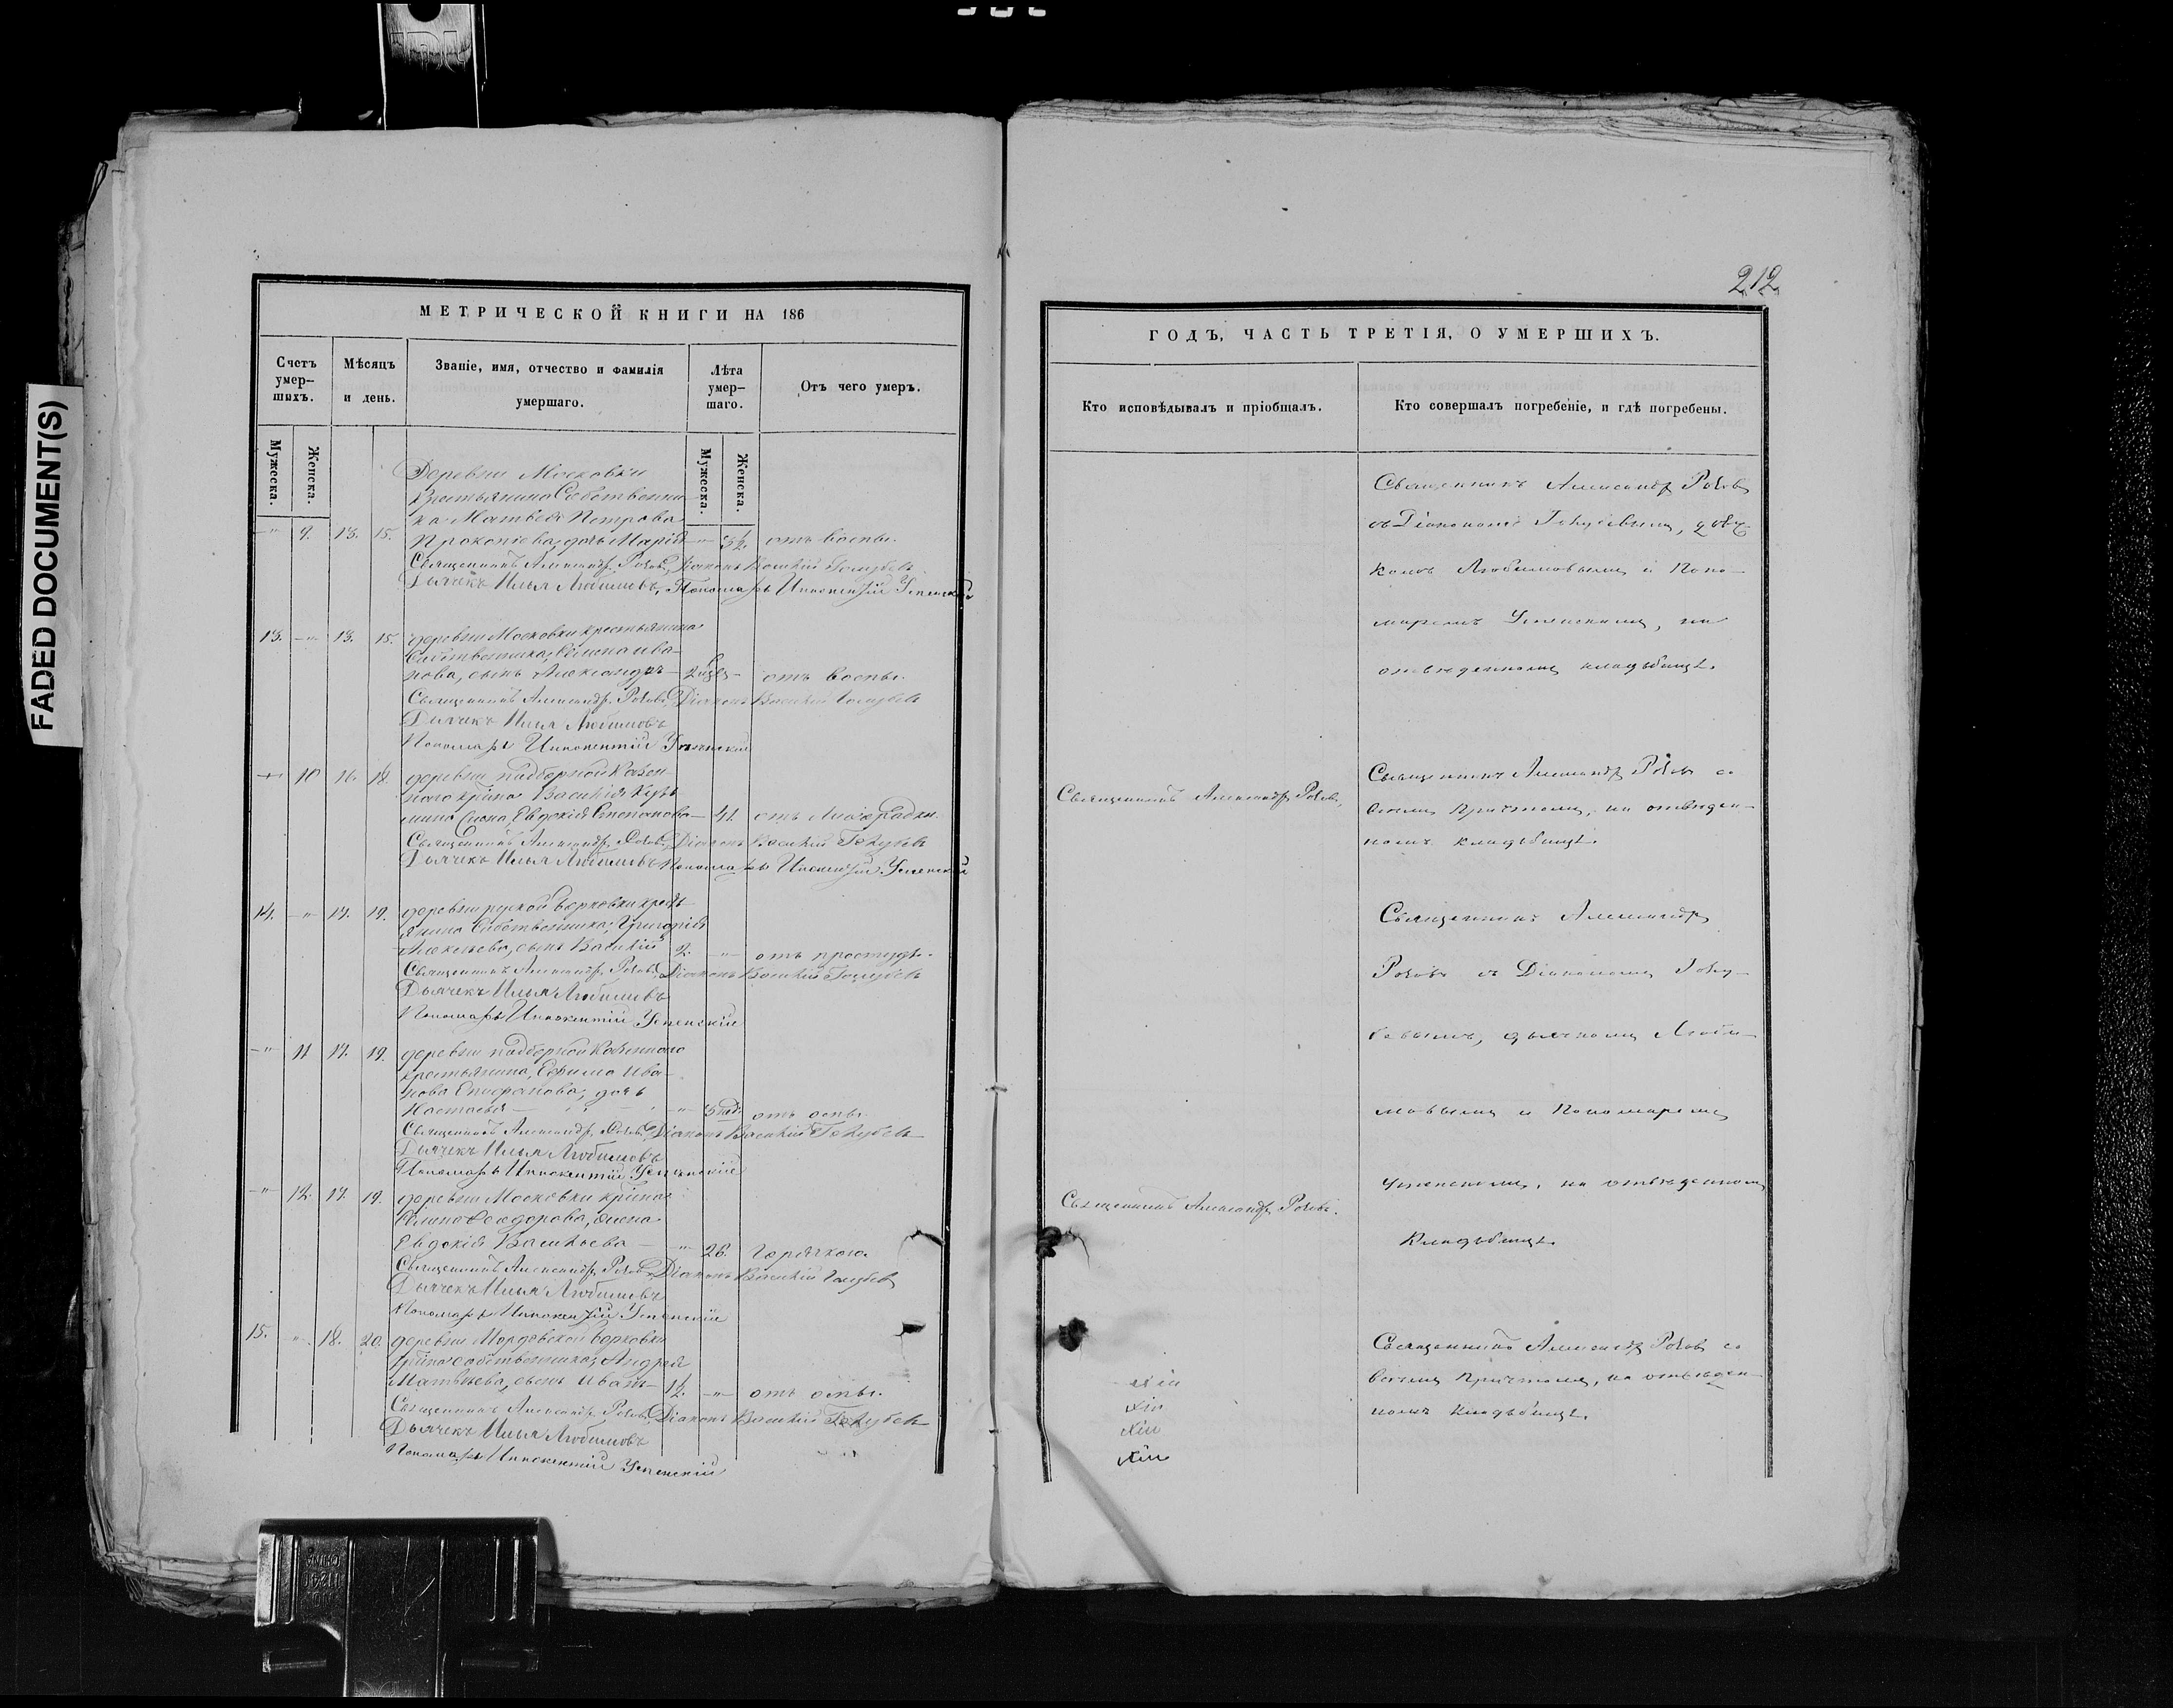 FADED DOCUMENT(S)
212
МЕТРИЧЕСКОЙ КНИГИ НА 186
Счетъ умер-шихъ.
Мужеска.
Женска.
Мѣсяцъ и день.
Званіе, имя, отчество и фамилія умершаго.
Лѣта умер-шаго.
Мужеска.
Женска.
Отъ чего умеръ.
Деревни Московки
Крестьянина Собственни-
ка Матвея Петрова
" 9. 13. 15. Прокопіева, дочь Марія — отъ воспы.
Священникъ Александръ Діаконъ Василій Голубевъ
Дьячекъ Илья Любимовъ, Пономарь Иннокентій Успенскій
13. " 13. 15. деревни Московки крестьянина
Собственника, Ива-
нова, сынъ Александръ — отъ воспы.
Священникъ Александръ Діаконъ Василій Голубевъ
Дьячекъ Илья Любимовъ
Пономарь Иннокентій Успенскій
10 16. 18. деревни Казен-
наго кр̃ина Василія Кузь-
мина жена, Евдокія Степанова — 41. отъ лихорадки.
Священникъ Александръ Діаконъ Василій Голубевъ
Дьячекъ Илья Любимовъ Пономарь Иннокентій Успенскій
14. " 17. 19. деревни руской Борковки кресть-
янина Собственника, Григорія
Алексѣева, сынъ Василій 2. " отъ простуды.
Священникъ Александръ Діаконъ Василій Голубевъ
Дьячекъ Илья Любимовъ
Пономарь Иннокентій Успенскій
" 11 17. 19. деревни Казеннаго
крестьянина, Ефима Ива-
нова Епифанова, дочь
Настасья — " отъ оспы.
Священникъ Александръ Діаконъ Василій Голубевъ
Дьячекъ Илья Любимовъ
Пономарь Иннокентій Успенскій
" 12. 17. 19. деревни Московки кр̃ина
Ѳеодорова, жена
Евдокія Васильева — " 26. Горячкою.
Священникъ Александръ Діаконъ Василій Голубевъ
Дьячекъ Илья Любимовъ
Пономарь Иннокентій Успенскій
15. " 18. 20. деревни Мордовской Борковки
кр̃ина собственника, Андрея
Матвѣева, сынъ Иванъ — " отъ оспы.
Священникъ Александръ Діаконъ Василій Голубевъ
Дьячекъ Илья Любимовъ
Пономарь Иннокентій Успенскій
ГОДЪ, ЧАСТЬ ТРЕТІЯ, О УМЕРШИХЪ.
Кто исповѣдывалъ и пріобщалъ.
Кто совершалъ погребеніе, и гдѣ погребены.
Священникъ Александръ
съ Діакономъ Голубевымъ, дьяч-
комъ Любимовымъ и Поно-
маремъ Успенскимъ, на
отведенномъ кладбищѣ.
Священникъ Александръ
Священникъ Александръ со
всемъ Причтомъ, на отведен-
номъ кладбищѣ.
Священникъ Александръ
съ Діакономъ Голу-
бевымъ, дьячкомъ Люби-
мовымъ и Пономаремъ
Успенскимъ, на отведенномъ
Кладбищѣ.
Священникъ Александръ
Священникъ Александръ со
всемъ Причтомъ, на отведен-
номъ кладбищѣ.